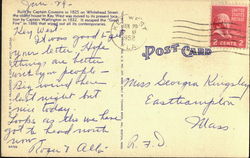 Jan. 29-
Built by Captain Cousens in 1825 on Whitehead Street
the oldest house in Key West was moved to its present loca-
tion by Captain Warrington in 1832. It escaped the "Great
Fire" in 1886 that wiped out all its contemporaries.
Key West
It was good to get
your letter. Hope
things are better
with you people -
Big wind here
last night but
nice today.
Looks as we have
got to head north
now
Roger & Alb
1952
UNITED STATES POSTAGE
2 CENTS 2
POST CARD
Miss Georgia Kingsley
Easthampton
Mass.
R.F.D